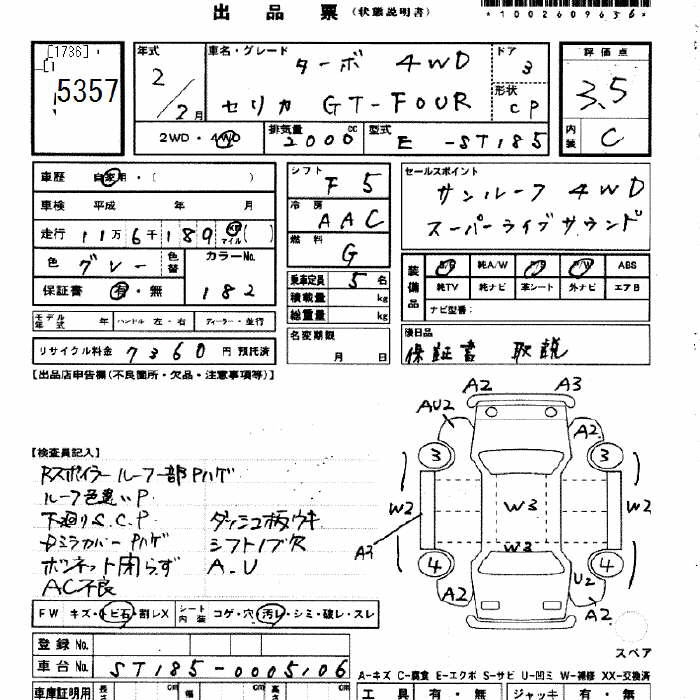 出品票 (状態説明書)
*1002609636*
[1736]
5357
年式 2/2月
車名・グレード ターボ 4WD
セリカ GT-FOUR
ドア 3
形状 CP
2WD・4WD
排気量 2000 cc
型式 E-ST185
評価点 3.5
内装 C
車歴 自家用・( )
車検 平成 年 月
走行 11万6千189 KM マイル ( )
色 グレー 色替 カラーNo. 182
保証書 有・無
モデル年式 年 ハンドル 左・右 ディーラー・並行
リサイクル料金 7360 円 預託済
シフト F5
冷房 AAC
燃料 G
乗車定員 5 名
積載量 kg
総重量 kg
名変期限 月 日
セールスポイント
サンルーフ 4WD
スーパーライブサウンド
装備品 S/R 純A/W P/S P/W ABS
純TV 純ナビ 革シート 外ナビ エアB
ナビ型番:
後日品
保証書 取説
[出品店申告欄(不良箇所・欠品・注意事項等)]
[検査員記入]
Rスポイラー ルーフ一部Pハゲ
ルーフ色違いP
下廻りS.C.P ダッシュ板ウキ
ドミラカバーPハゲ シフトノブ欠
ボンネット閉らず A-U
AC不良
A2 A3
AU2 A2
3 3
W2 W3 W2
A2 W3
4 4
A2 U2 A2
スペア
FW キズ・トビ石・割レX シート内装 コゲ・穴・汚レ・シミ・破レ・スレ
登録No.
車台No. ST185-0005106
A−キズ C−腐食 E−エクボ S−サビ U−凹ミ W−補修 XX−交換済
車庫証明用 長さ cm 幅 cm 高さ cm
工具 有・無 ジャッキ 有・無